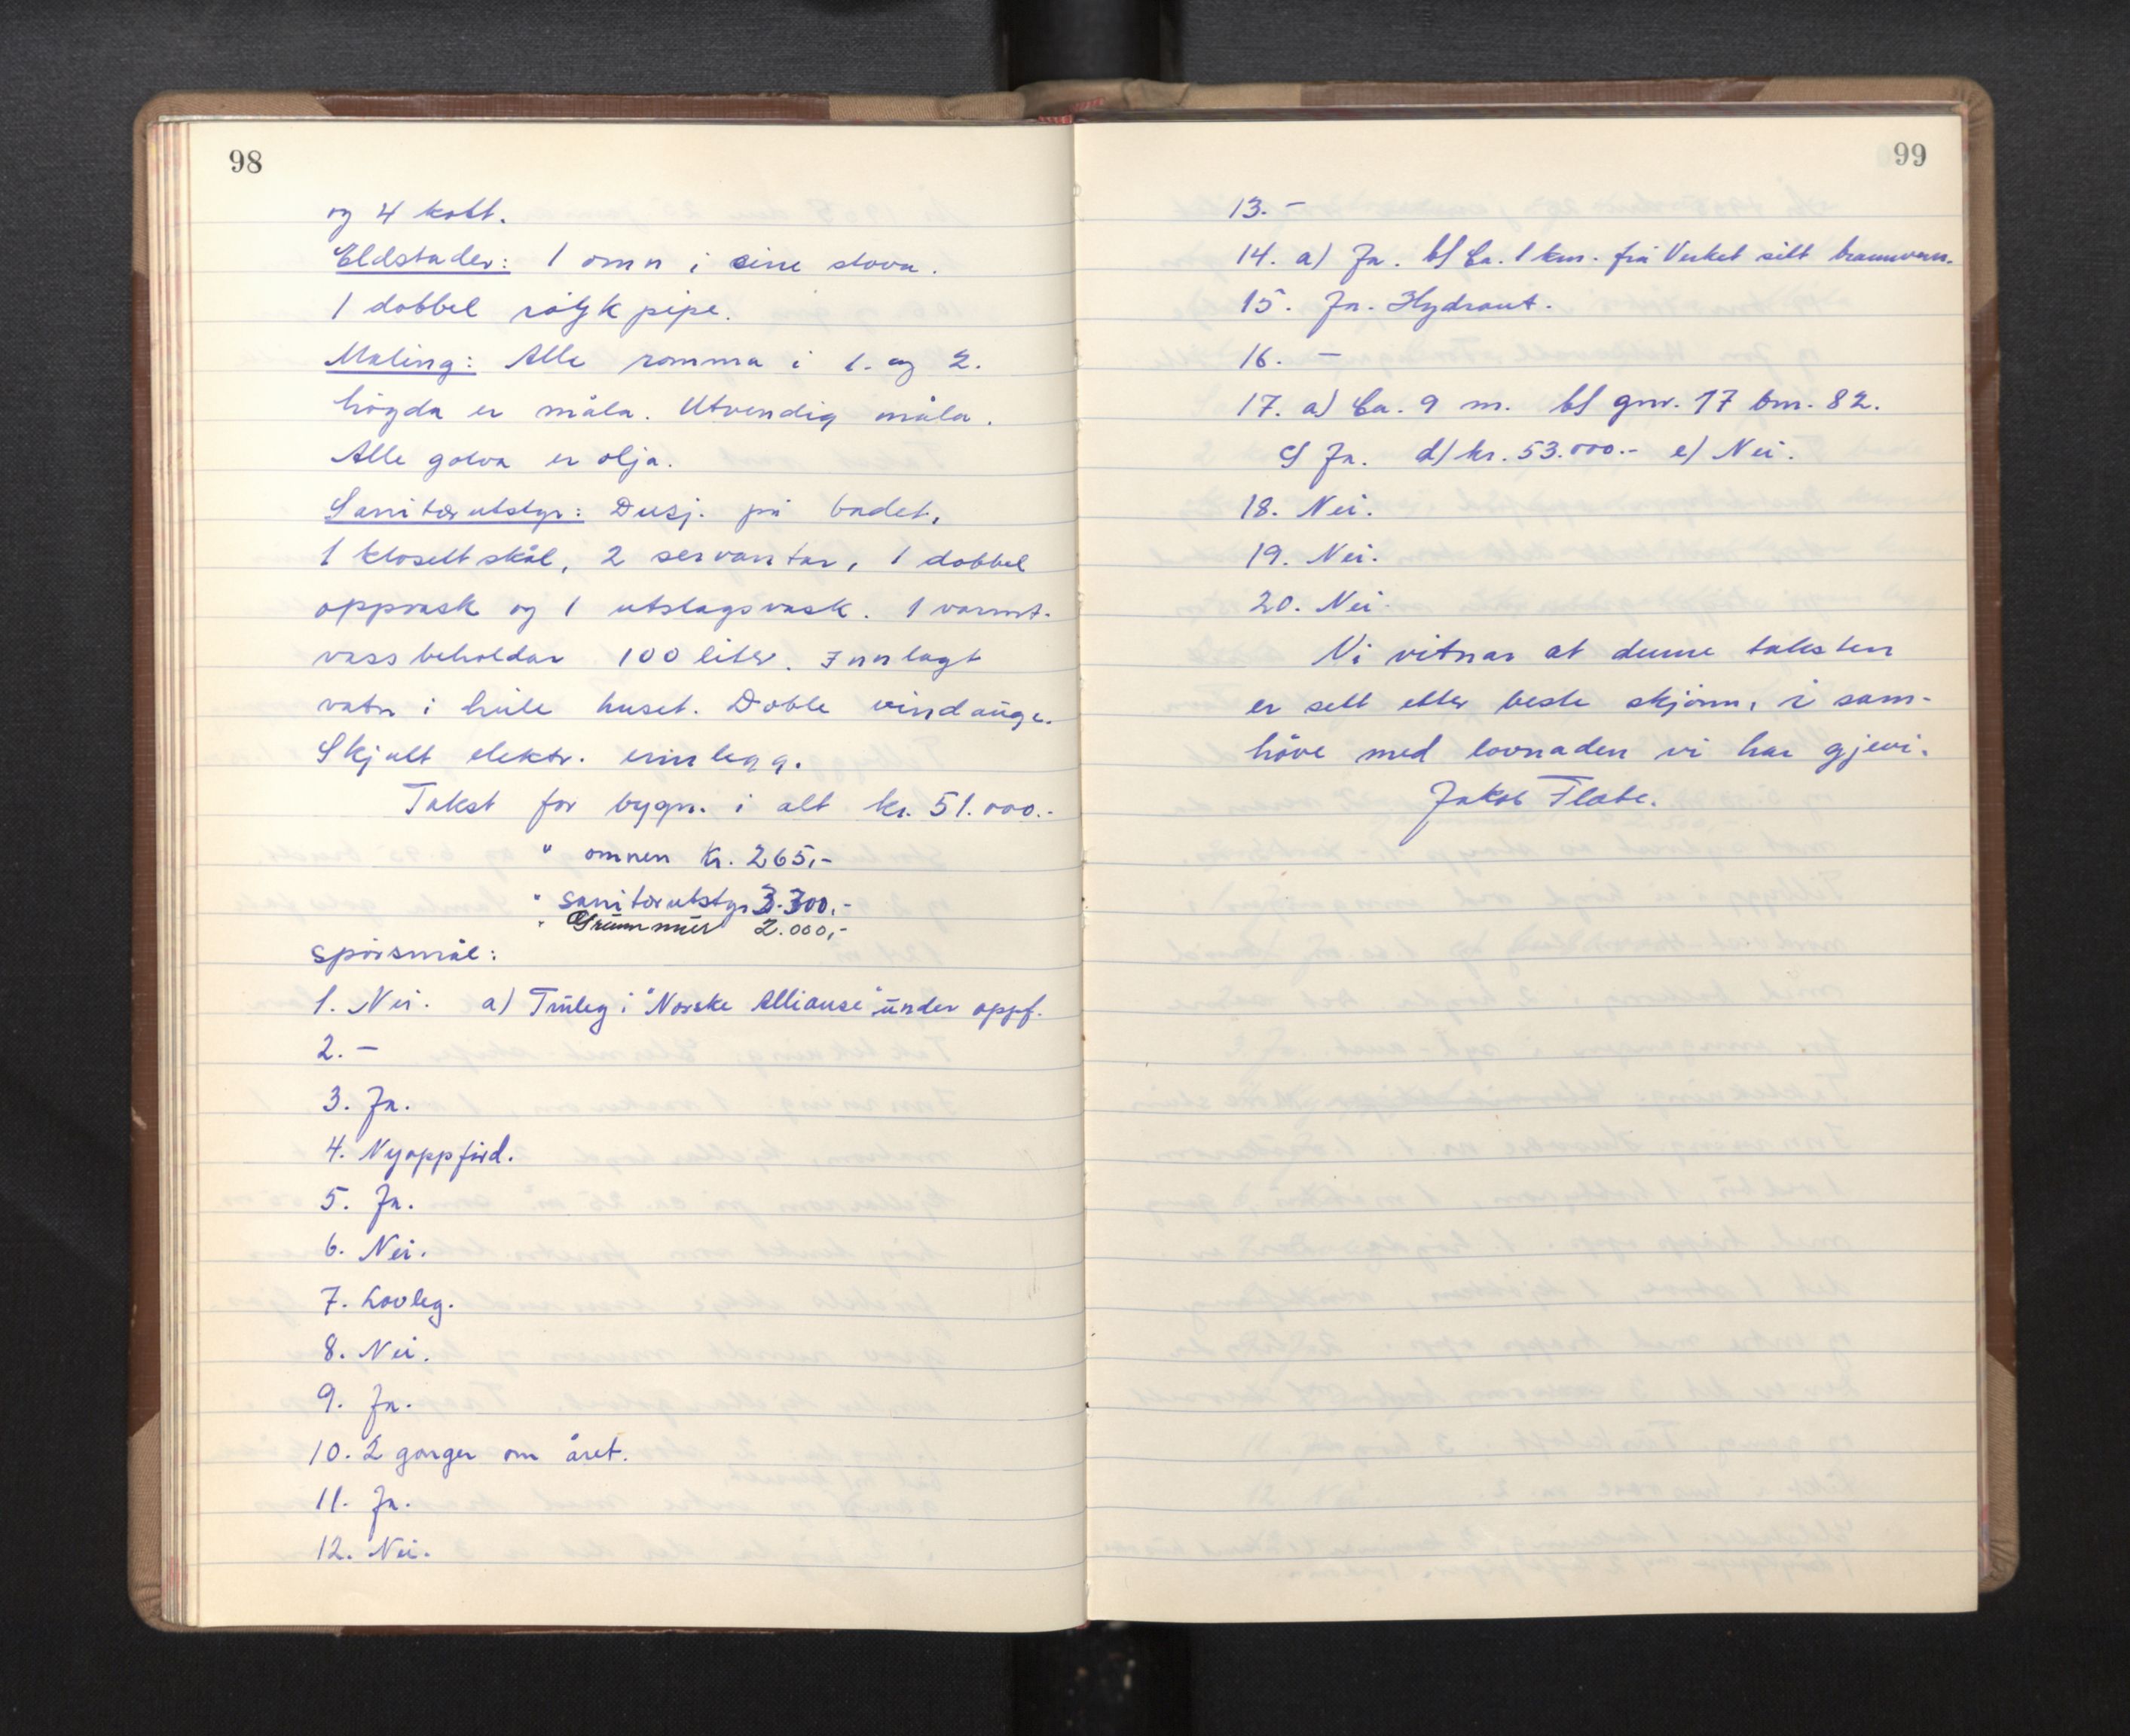 98
og 4 kott.
Eldstader: 1 omn i eine stova.
1 dobbel röykpipe.
Maling: Alle romma i 1. og 2.
högda er måla. Utvendig måla.
Alle golva er olja.
Sanitærutstyr: Dusj. på badet,
1 klosettskål, 2 servantar, 1 dobbel
oppvask og 1 utslagsvask. 1 varmt-
vassbeholdar 100 liter. Innlagt
vatn i heile huset. Doble vindauge.
Skjult elektr. innlegg.
Takst for bygn. i alt kr. 51.000.-
" omnen kr. 265,-
" sanitærutstyr 3.300,-
" Grunnmur 2.000,-
Spörsmål:
1. Nei. a) Truleg i "Norske Allianse" under oppf.
2. -
3. Ja.
4. Nyoppförd.
5. Ja.
6. Nei.
7. Lovleg.
8. Nei.
9. Ja.
10. 2 ganger om året.
11. Ja.
12. Nei.
99
13. -
14. a) Ja. b) Ca. 1 km. frå Verket sitt brannvern.
15. Ja. Hydrant.
16. -
17. a) Ca. 9 m. b) gnr. 17 bnr. 82.
c) Ja. d) kr. 53.000.- e) Nei.
18. Nei.
19. Nei.
20. Nei.
Vi vitnar at denne taksten
er sett etter beste skjönn, i sam-
höve med lovnaden vi har gjevi.
Jakob Flate.